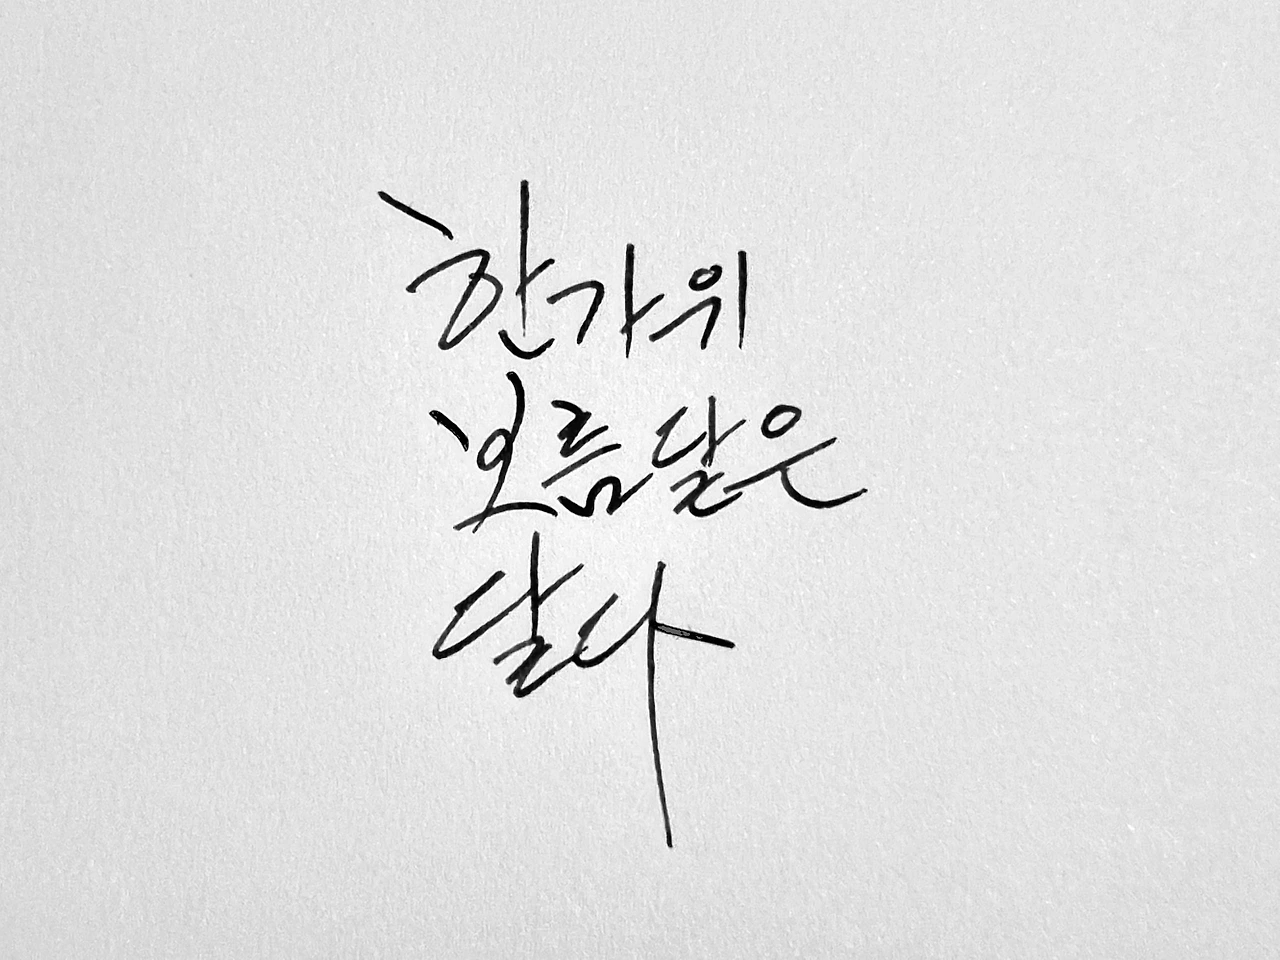 한가위
보름달은
달다